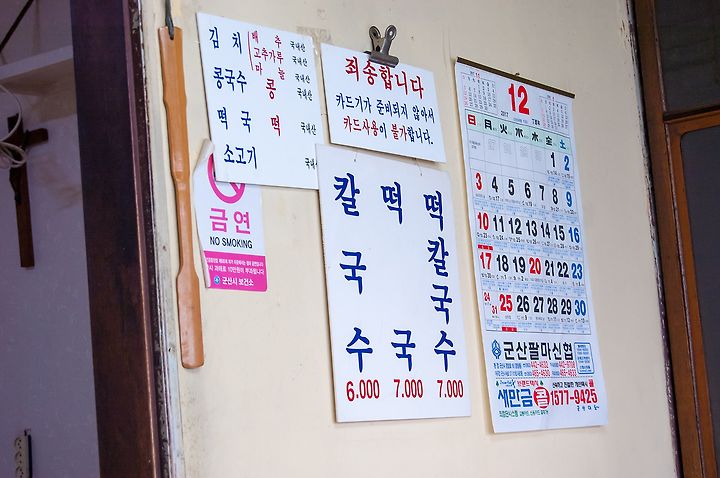 김치 배추 국내산
고추가루 국내산
마늘 국내산
콩국수 콩 국내산
떡국 떡 국내산
소고기 국내산
죄송합니다
카드기가 준비되지 않아서
카드사용이 불가합니다.
금연
NO SMOKING
군산시 보건소
칼국수 6.000
떡국 7.000
떡칼국수 7.000
2017 12
日 月 火 水 木 金 土
1 2
3 4 5 6 7 8 9
10 11 12 13 14 15 16
17 18 19 20 21 22 23
24 31 25 26 27 28 29 30
군산팔마신협
새만금 콜 1577-9425